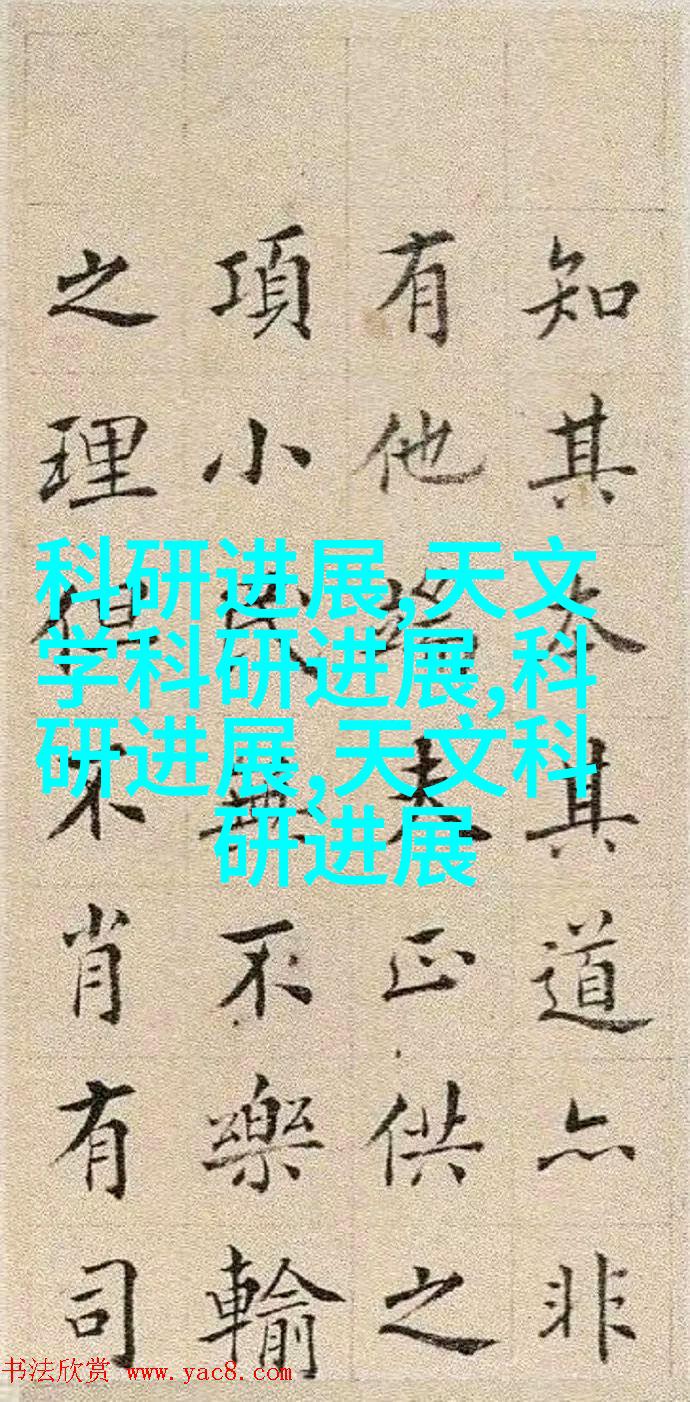 知其本其道亦非
有他端夫正供之
項小民無不樂輸
之理但不肖有司
科研进展,天文
学科研进展,科
研进展,天文科
研进展
书法欣赏 www.yac8.com